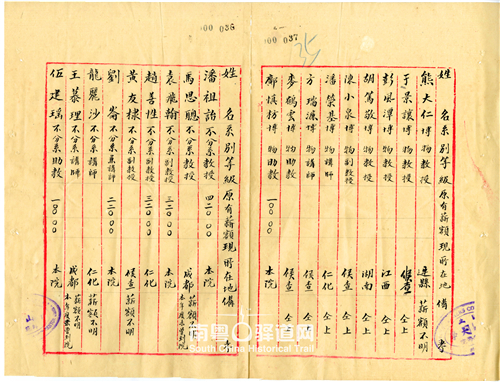 00 036
00 037
姓名系別等級原有薪額現所在地備考
熊大仁博物教授 連縣 薪額不明
于景讓博物教授 候查 仝上
彭風潭博物教授 江西 仝上
胡篤敬博物教授 湖南 仝上
陳小泉博物副教授 候查 仝上
潘榮基博物講師 仁化 仝上
方瑞源博物講師 仝上
麥鶴雲博物助教 候查 仝上
鄺慎枋博物助教 一〇〇〇〇 本院
姓名系別等級原有薪額現所在地備考
潘祖詒不分系教授 四二〇〇〇 本院
馬思聰不分系教授 成都
袁飛翰不分系副教授 三二〇〇〇 本院
趙善性不分系副教授 三二〇〇〇 仁化
黃友棣不分系副教授 候查 薪額不明
劉崙不分系講師 二二〇〇〇 本院
龍麗沙不分系講師 仁化 薪額不明
王慕理不分系講師 成都 薪額不明
伍建瑤不分系助教 一〇〇〇〇 本院
南粤驛道网
South China Historical Trail